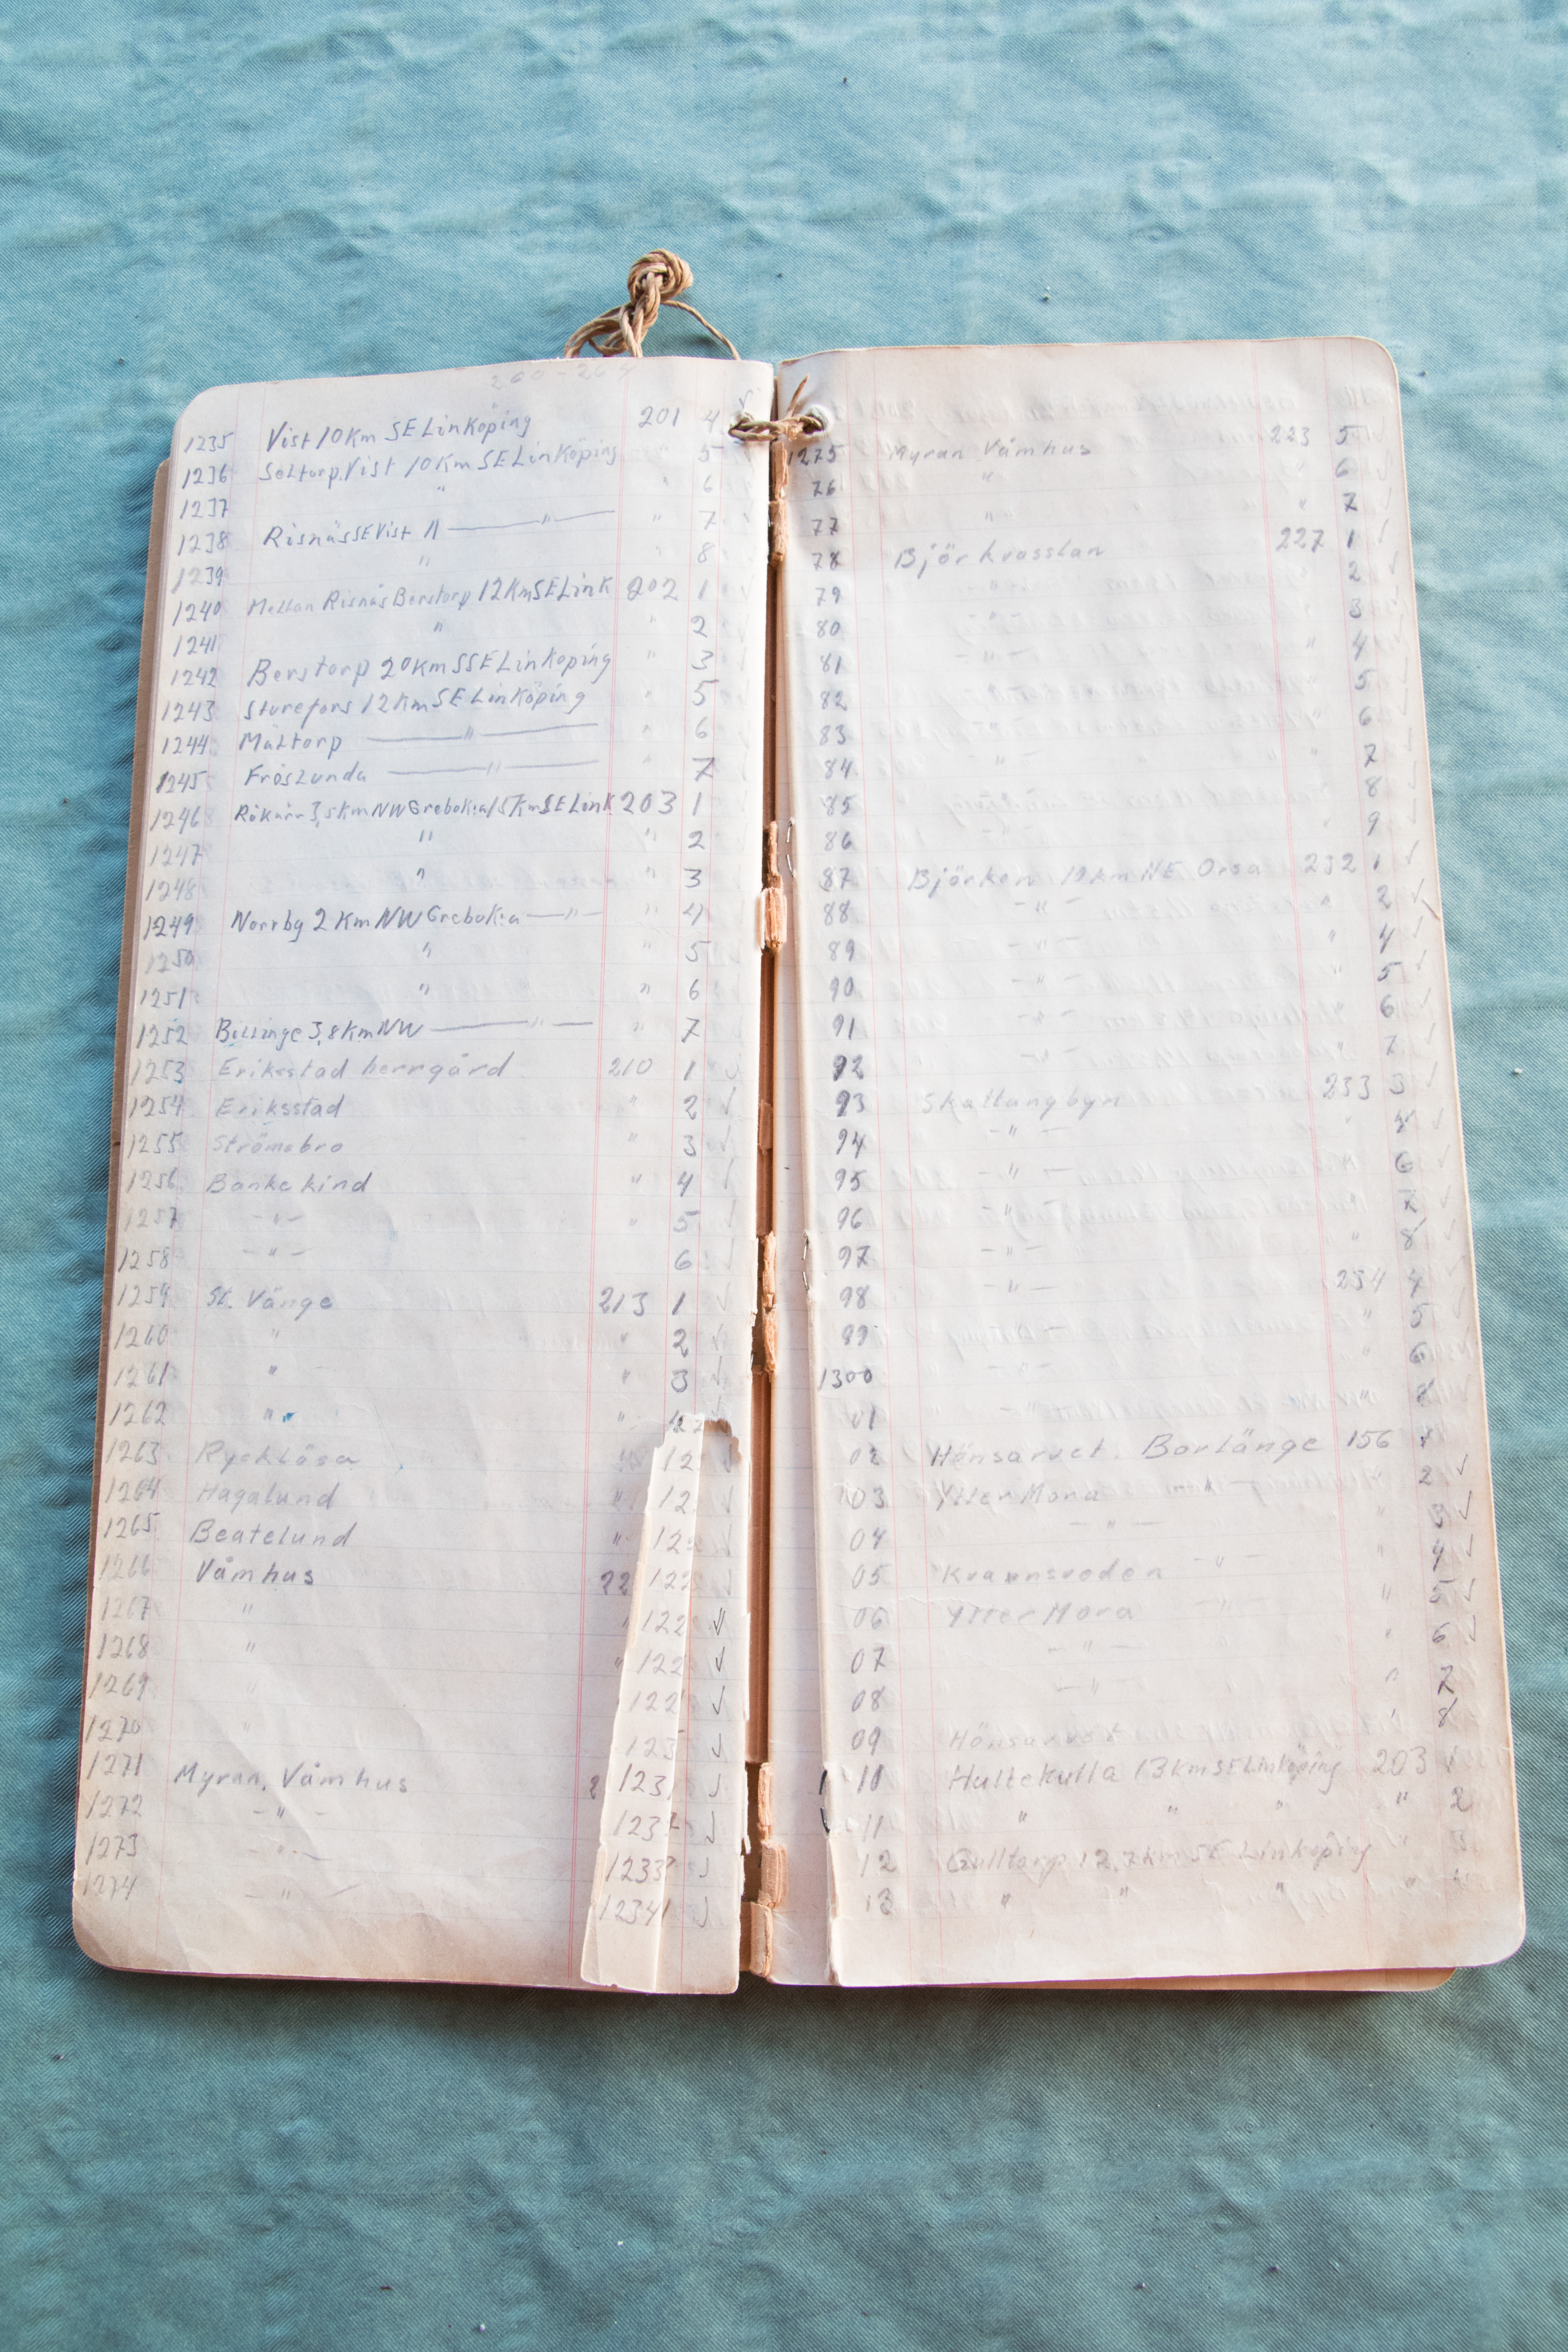 200-204
1235 Vist 10 km SE Linköping 201 4 ✓
1236 Seltorp. Vist 10 Km SE Linköping 5
1237 " " 6
1238 Risnäs SE Vist 11 —"— " 7
1239 " " 8
1240 Mellan Risnäs Berstorp 12 KmSELink 202 1
1241 " " 2
1242 Berstorp 20 km SSE Linköping " 3
1243 Sturefors 12 Km SE Linköping " 5
1244 Maltorp —"— " 6
1245 Fröslunda —"— " 7
1246 3,5km NW Grebo k:a 15 Km SE Link 203 1
1247 " " 2
1248 " " 3
1249 Norrby 2 Km NW Grebo k:a —"— " 4
1250 " " 5
1251 " " 6
1252 Billinge 3,8 Km NW —"— " 7
1253 Eriksstad herrgård 210 1 ✓
1254 Eriksstad " 2 ✓
1255 Strömsbro " 3 ✓
1256 Bankekind " 4 ✓
1257 —"— " 5 ✓
1258 —"— 6 ✓
1259 St. Vänge 213 1 ✓
1260 " " 2 ✓
1261 " " 3 ✓
1262 " "
1263 Rycklösa 12 ✓
1264 Hagalund " 12 ✓
1265 Beatelund " 12 ✓
1266 Våmhus 22 122 ✓
1267 " " 122 ✓
1268 " " 122 ✓
1269 " 122 ✓
1270 " 123 ✓
1271 Myran, Våmhus 2 123 ✓
1272 —"— 1232 ✓
1273 —"— 1233 ✓
1274 —"— 1234 ✓
1275 Myran Våmhus 223 5 ✓
76 " " 6 ✓
77 " " 7 ✓
78 Björkvasslan 227 1 ✓
79 —"— 2 ✓
80 —"— 3 ✓
81 —"— 4 ✓
82 5 ✓
83 6 ✓
84 —"— " 7 ✓
85 8 ✓
86 —"— 9 ✓
87 Björken 19 km NE Orsa 232 1 ✓
88 —"— " 2 ✓
89 —"— " 4 ✓
90 —"— 5 ✓
91 —"— 6 ✓
92 —"— 7 ✓
93 Skattungbyn 233 3 ✓
94 —"— ✓
95 —"— 6 ✓
96 —"— 7 ✓
97 —"— 8 ✓
98 —"— 234 4 ✓
99 — " 5 ✓
1300 —"— " 6 ✓
01 —"— 8 ✓
02 Hönsarvet. Borlänge 156 1
03 Ytter Mora —"— 2 ✓
04 —"— " 3 ✓
05 Kvarnsveden —"— " 4 ✓
06 Ytter Mora —"— " 5 ✓
07 —"— " 6 ✓
08 —"— " 7
09 Hönsarvet 8
10 Hultekulla 13 km SE Linköping 203 1
11 " " " " 2
12 Gulltorp 12,7 km SE Linköping " 3
13 " " " "